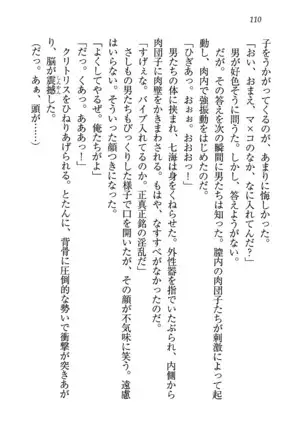 110
子をうかがってくるのが、あまりに悔しかった。
「お、おまえ、マ×コのなか、なに入れてんだ?」
男が好色そうに問うた。しかし、答えようがない。
が、その答えを次の瞬間に男たちは知った。膣内の肉団子たちが刺激によって起
動し、肉内で強振動をはじめたのだ。
「ひぎあっ。おぉぉ。おおおっ!」
男たちの体に挟まれ、七海は身をくねらせた。外性器を指でいたぶられ、内側から
肉団子に肉壁をかきまわされる。もはや、なすすべがなかった。
「すげぇな。バイブ入れてるのか。正真正銘の淫乱だ」
さしもの男たちもびっくりした様子で口を開いたが、その顔が不気味に笑う。遠慮
はいらない。そういった顔つきになった。
「よくしてやるぜ。俺たちがよ」
「だっ。くあっ。あああっ!」
クリトリスをひねりあげられる。とたんに、背骨に圧倒的な勢いで衝撃が突きあが
り、脳が震撼した。
しんかん
(だっ。あぁ、頭が……)